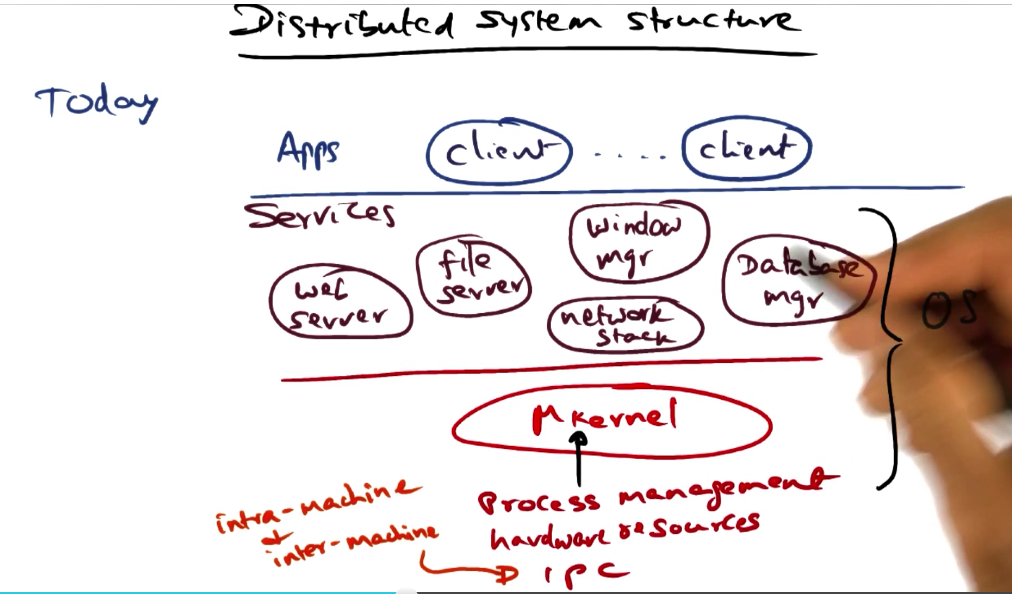 Distributed system structure
Today
Apps
client
. . . . .
client
Services
web
server
file
server
window
mgr
network
stack
Database
mgr
OS
μkernel
Process management
hardware resources
IPC
intra-machine
+
inter-machine